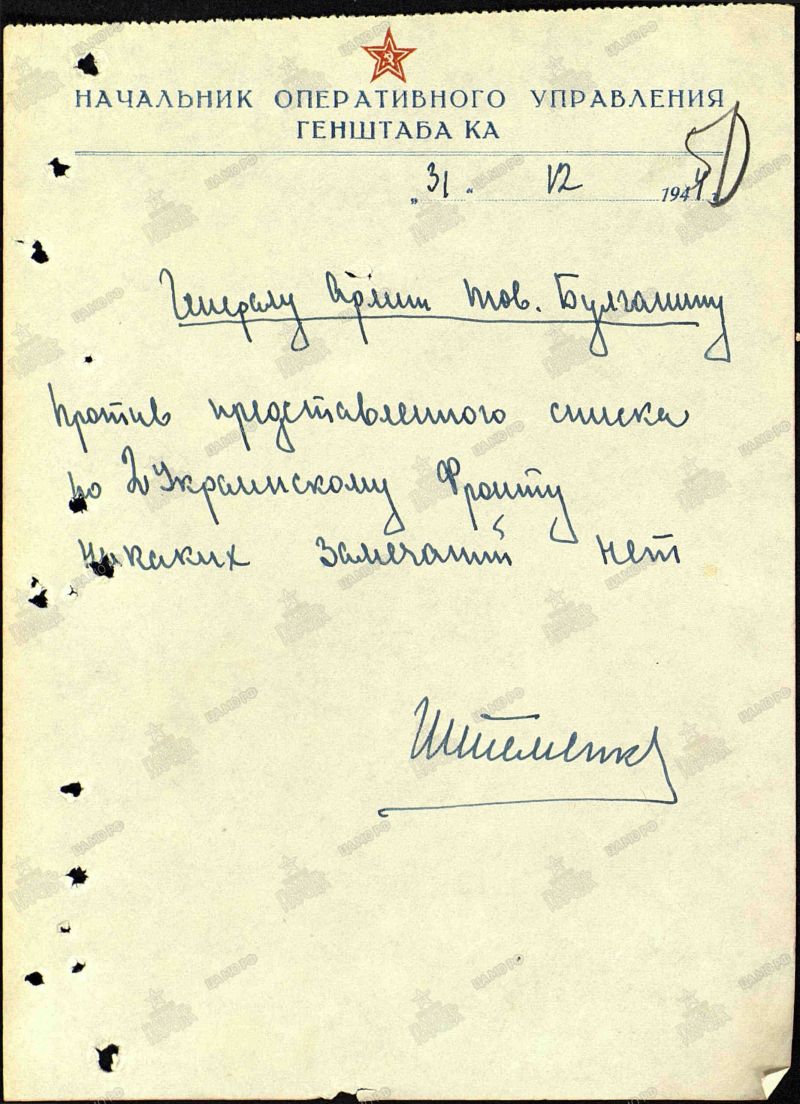 НАЧАЛЬНИК ОПЕРАТИВНОГО УПРАВЛЕНИЯ
ГЕНШТАБА КА
„31“ 12 1944 г.
Генералу Армии тов. Булганину
Против представленного списка
по 2 Украинскому Фронту
никаких замечаний нет
Штеменко